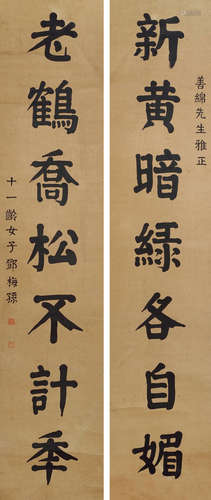 善綿先生雅正
新黄暗緑各自媚
老鶴喬松不計年
十一齡女子鄧梅孫